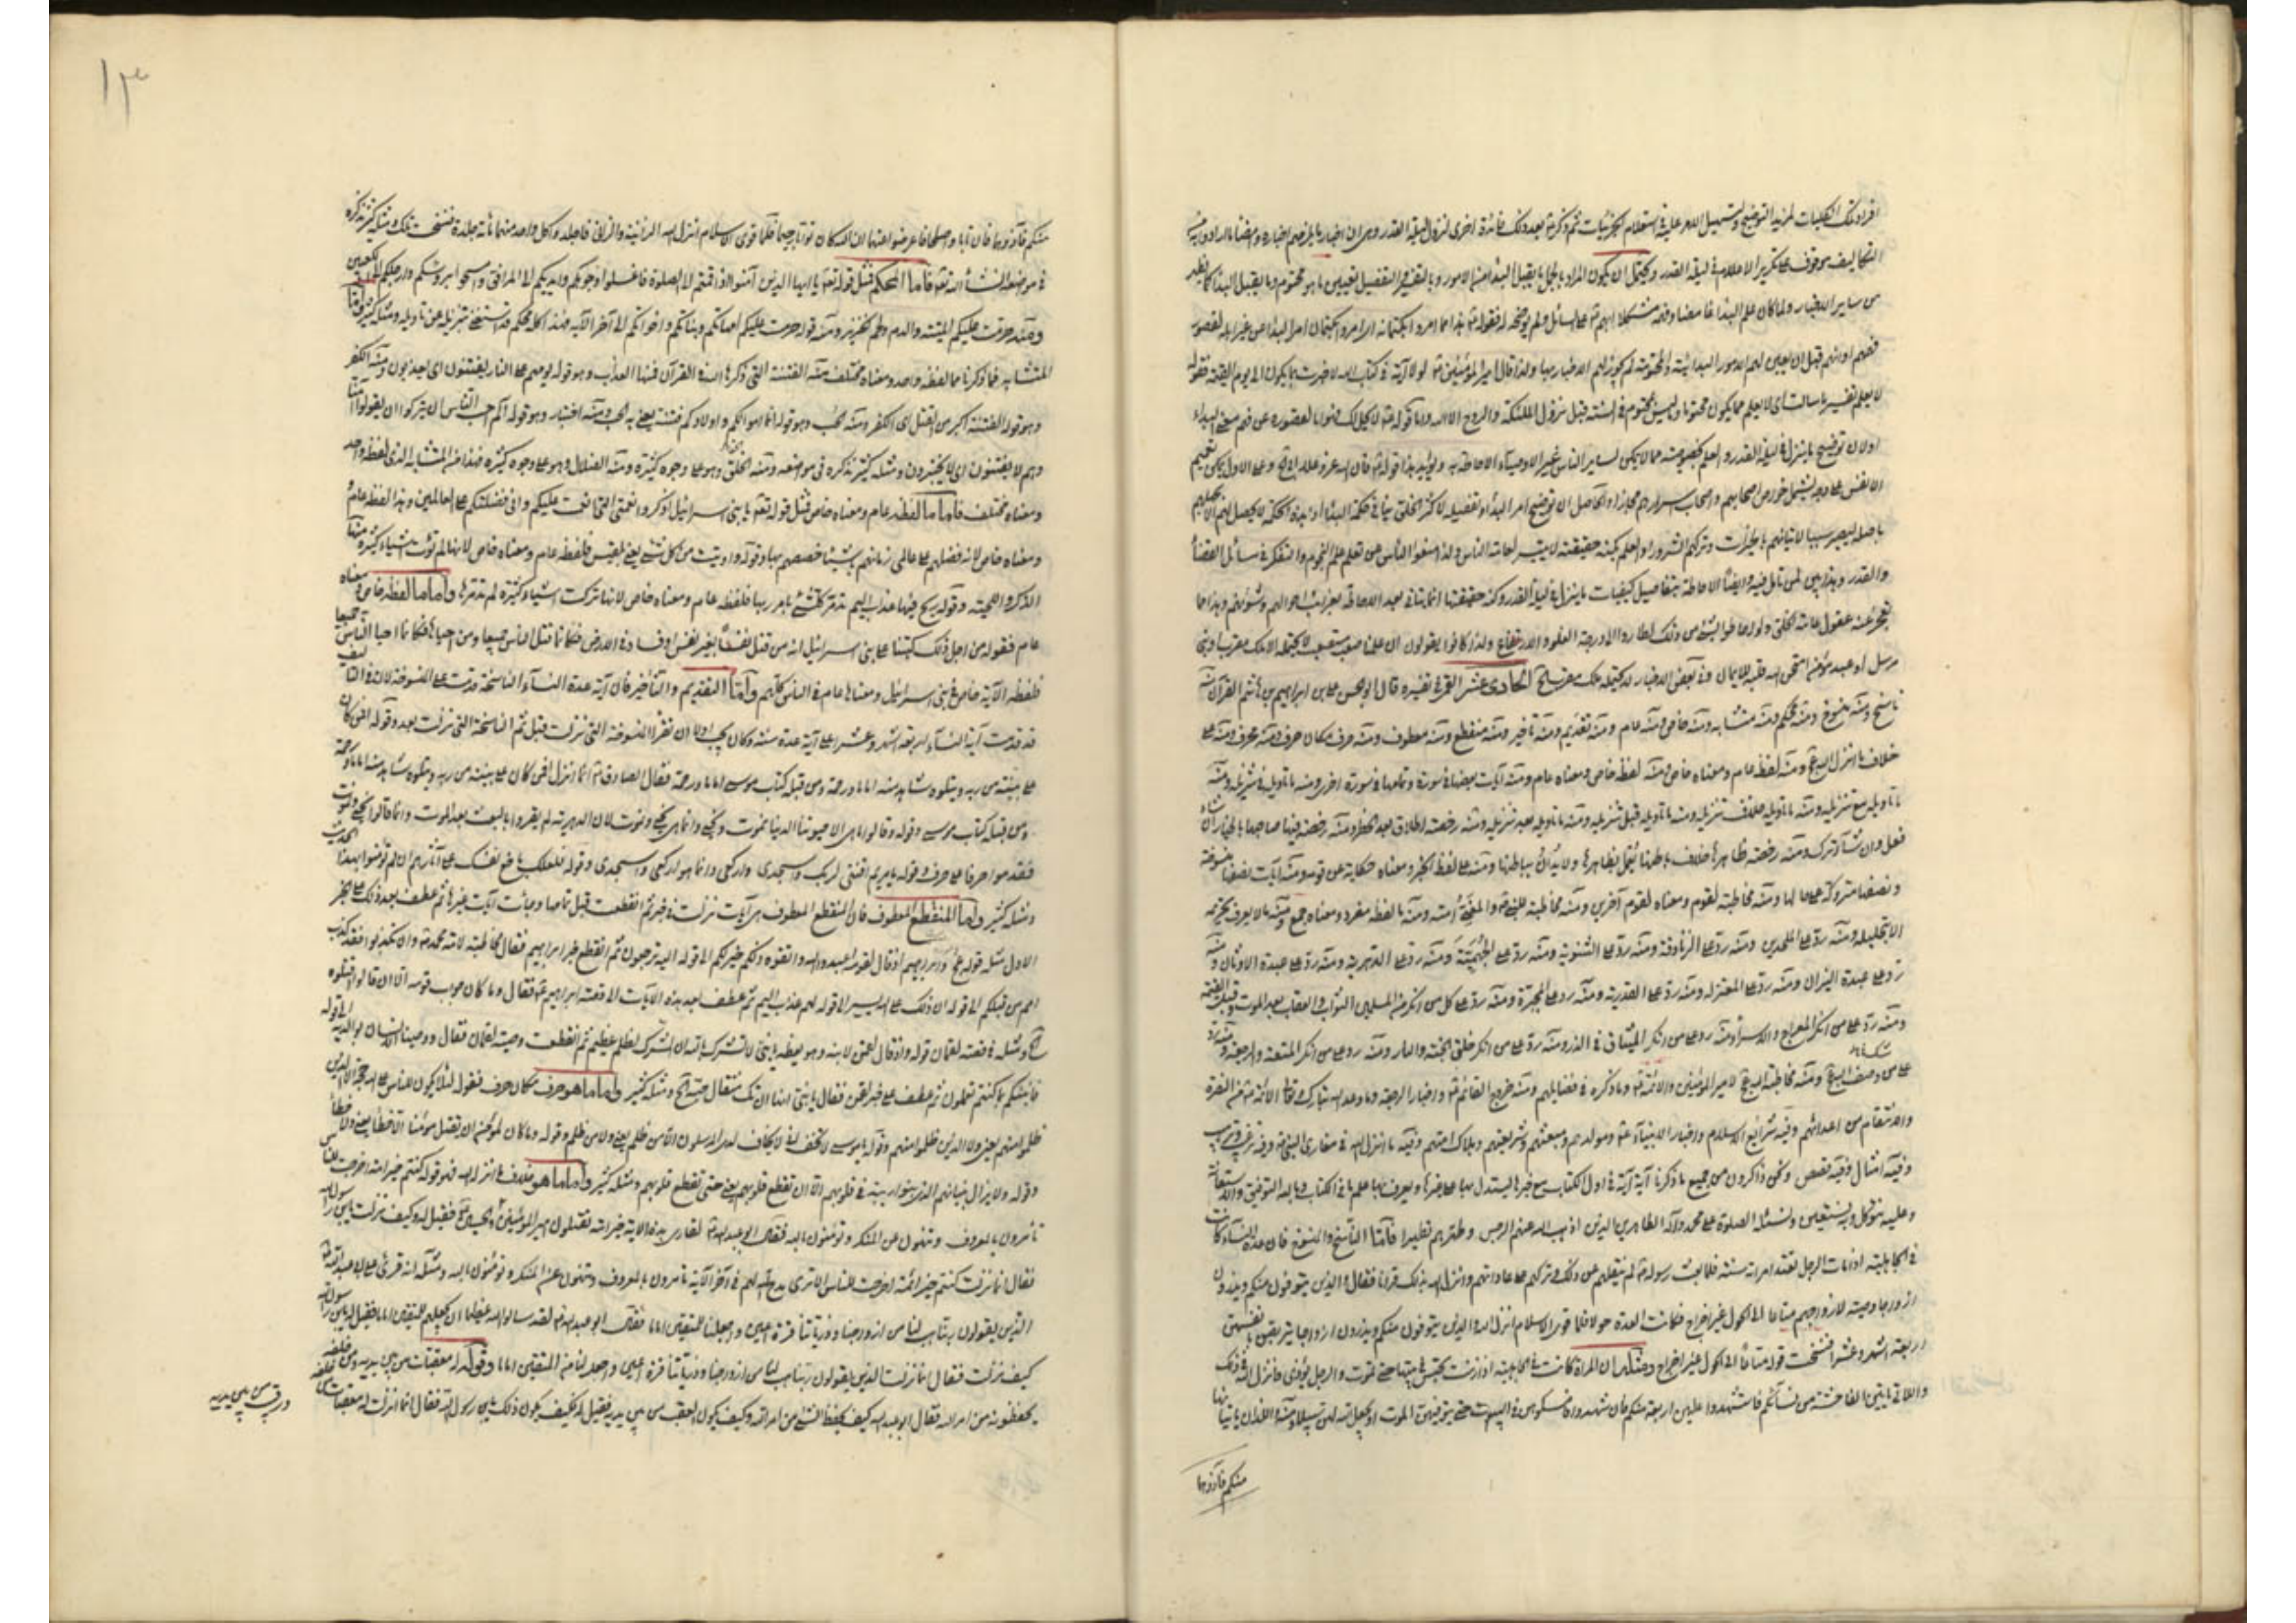 افراد تلك الكليات لمزيد التوضيح ولتسهيل الامر عليه في استعلام الجزئيات ثم ذكر بعد ذلك فائدة اخرى لنزول ليلة القدر وهي ان اخبار ما يلزمهم اخباره وامضاء ما امروا به من
التكاليف موقوف على تكرير الاعلام في ليلة القدر ويحتمل ان يكون المراد بالجمل ما يقبل البداء من الامور وبالتفسير والتفصيل تعيين ما هو محتوم وما يقبل البداء كما يظهر
من ساير الاخبار ولما كان علم البداء غامضا وفهمه مشكلا ابهم على السائل ولم يوضحه له فقوله هذا مما امروا بكتمانه اي امروا بكتمان امر البداء عن غير اهله لقصور
فهمهم او انهم قبل ان يعين لهم الامور البدائية والمحتومة لم يجز لهم الاخبار بها ولذا قال امير المؤمنين لولا آية في كتاب الله لاخبرت بما يكون الى يوم القيمة فقوله
لا يعلم تفسير ما سالت اي لا يعلم ما يكون محتوما وما ليس بمحتوم في السنة قبل نزول الملئكة والروح الا الله واما قوله لا يحل لك فهو اما لقصوره عن فهم معنى البداء
او لان توضيح ما ينزل في ليلة القدر والعلم بخصوصه مما لا يمكن لساير الناس غير الاوصياء الاحاطة به ويؤيد هذا قوله فان الله عز وعلا الخ وعلى الاول يمكن تعميم
الانفس على وجه يشمل خواص اصحابهم واصحاب اسرارهم مجازا والحاصل ان توضيح امر البداء وتفصيله لاكثر الخلق ينافي حكمة البداء اذ هذه الحكمة لا يحصل لهم الا بجهلهم
باصله ليصير سببا لاتيانهم بالخيرات وتركهم الشرور او العلم بكنه حقيقته لا يتيسر لعامة الناس ولذا منعوا الناس من تعلم علم النجوم والتفكر في مسائل القضاء
والقدر وهذا بين لمن تامل فيه وايضا الاحاطة بتفاصيل كيفيات ما ينزل في ليلة القدر وكنه حقيقتها انما يتاتى بعد الاحاطة بغرائب احوالهم وشئونهم وهذا مما
تعجز عنه عقول عامة الخلق ولو احاطوا بشيء من ذلك لطاروا الى درجة الغلو والارتفاع ولذا كانوا يقولون ان علمنا صعب مستصعب لا يحتمله الا ملك مقرب او نبي
مرسل او عبد مؤمن امتحن الله قلبه للايمان وفي بعض الاخبار لا يحتمله ملك مقرب الخ الحادي عشر القمي في تفسيره قال ابو الحسن علي بن ابراهيم بن هاشم القرآن منه
ناسخ ومنه منسوخ ومنه محكم ومنه متشابه ومنه خاص ومنه عام ومنه تقديم ومنه تاخير ومنه منقطع ومنه معطوف ومنه حرف مكان حرف ومنه محرف ومنه على
خلاف ما انزل الله ومنه لفظه عام ومعناه خاص ومنه لفظه خاص ومعناه عام ومنه آيات بعضها في سورة وتمامها في سورة اخرى ومنه ما تاويله في تنزيله ومنه
ما تاويله مع تنزيله ومنه ما تاويله خلاف تنزيله ومنه ما تاويله قبل تنزيله ومنه ما تاويله بعد تنزيله ومنه رخصة اطلاق بعد الحظر ومنه رخصة فيها صاحبها بالخيار ان شاء
فعل وان شاء ترك ومنه رخصة ظاهرها خلاف باطنها يعمل بظاهرها ولا يدان بباطنها ومنه على لفظ الخبر ومعناه حكاية عن قوم ومنه آيات نصفها منسوخة
ونصفها متروكة على حالها ومنه مخاطبة لقوم ومعناه لقوم آخرين ومنه مخاطبة للنبي والمعني امته ومنه ما لفظه مفرد ومعناه جمع ومنه ما لا يعرف تحريمه
الا بتحليله ومنه رد على الملحدين ومنه رد على الزنادقة ومنه رد على الثنوية ومنه رد على الجهمية ومنه رد على الدهرية ومنه رد على عبدة الاوثان ومنه
رد على عبدة النيران ومنه رد على المعتزلة ومنه رد على القدرية ومنه رد على المجبرة ومنه رد على كل من انكر من المسلمين الثواب والعقاب بعد الموت وقبل القيمة
ومنه رد على من انكر المعراج والاسراء ومنه رد على من انكر الميثاق في الذر ومنه رد على من انكر خلق الجنة والنار ومنه رد على من انكر المتعة والرجعة ومنه رد
على من وصف الله ومنه مخاطبة الله لامير المؤمنين والائمة وما ذكره في فضايلهم ومنه خروج القائم واخبار الرجعة وما وعد الله تبارك وتعالى الائمة من النصرة
والانتقام من اعدائهم وفيه شرايع الاسلام واخبار الانبياء ومولدهم ومبعثهم وشريعتهم وهلاك امتهم وفيه ما انزل الله في مغازي النبي وفيه ترغيب وترهيب
وفيه امثال وفيه قصص ونحن ذاكرون من جميع ما ذكرنا آية آية في اول الكتاب مع خبرها ليستدل بها على غيرها ويعرف بها علم ما في الكتاب وبالله التوفيق والاستعانة
وعليه نتوكل وبه نستعين ونسئله الصلوة على محمد وآله الطاهرين الذين اذهب الله عنهم الرجس وطهرهم تطهيرا فاما الناسخ والمنسوخ فان عدة النساء كانت
في الجاهلية اذا مات الرجل تعتد امراته سنة فلما بعث رسوله لم ينقلهم عن ذلك وتركهم على عاداتهم وانزل الله بذلك قرآنا فقال والذين يتوفون منكم ويذرون
ازواجا وصية لازواجهم متاعا الى الحول غير اخراج فكانت العدة حولا فلما قوي الاسلام انزل الله والذين يتوفون منكم ويذرون ازواجا يتربصن بانفسهن
اربعة اشهر وعشرا فنسخت قوله متاعا الى الحول غير اخراج ومثله ان المراة كانت في الجاهلية اذا زنت تحبس في بيتها حتى تموت والرجل يؤذى فانزل الله في ذلك
واللاتي ياتين الفاحشة من نسائكم فاستشهدوا عليهن اربعة منكم فان شهدوا فامسكوهن في البيوت حتى يتوفيهن الموت او يجعل الله لهن سبيلا ومنه واللذان ياتيانها
منكم فآذوهما
١٣
منكم فآذوهما فان تابا واصلحا فاعرضوا عنهما ان الله كان توابا رحيما فلما قوي الاسلام انزل الله الزانية والزاني فاجلدوا كل واحد منهما مائة جلدة فنسخت تلك ومثله كثير نذكره
في مواضعه انشاء الله تعالى فاما المحكم فمثل قوله تع يا ايها الذين آمنوا اذا قمتم الى الصلوة فاغسلوا وجوهكم وايديكم الى المرافق وامسحوا برؤسكم وارجلكم الى الكعبين
ومنه حرمت عليكم الميتة والدم ولحم الخنزير ومنه قوله حرمت عليكم امهاتكم وبناتكم واخواتكم الى آخر الآية فهذا كله محكم قد استغني بتنزيله عن تاويله ومثله كثير واما
المتشابه فما ذكرنا مما لفظه واحد ومعناه مختلف منه الفتنة التي ذكرها الله في القرآن فمنها العذاب وهو قوله يوم هم على النار يفتنون اي يعذبون ومنه الكفر
وهو قوله الفتنة اكبر من القتل اي الكفر ومنه الحب وهو قوله انما اموالكم واولادكم فتنة يعني به الحب ومنه اختبار وهو قوله الم احسب الناس ان يتركوا ان يقولوا آمنا
وهم لا يفتنون اي لا يختبرون ومثله كثير نذكره في مواضعه ومنه الخلق وهو على وجوه كثيرة ومنه الضلال وهو على وجوه كثيرة فهذا من المتشابه الذي لفظه واحد
ومعناه مختلف فاما ما لفظه عام ومعناه خاص فمثل قوله تع يا بني اسرائيل اذكروا نعمتي التي انعمت عليكم واني فضلتكم على العالمين وهذا لفظه عام
ومعناه خاص لانه فضلهم على عالمي زمانهم باشياء خصصهم بها وقوله واوتيت من كل شيء يعني بلقيس فلفظه عام ومعناه خاص لانها لم تؤت اشياء كثيرة منها
الذكر واللحية وقوله ريح فيها عذاب اليم تدمر كل شيء بامر ربها فلفظه عام ومعناه خاص لانها تركت اشياء كثيرة لم تدمرها واما ما لفظه خاص ومعناه
عام فقوله من اجل ذلك كتبنا على بني اسرائيل انه من قتل نفسا بغير نفس او فساد في الارض فكانما قتل الناس جميعا ومن احياها فكانما احيا الناس جميعا
فلفظه الآية خاص في بني اسرائيل ومعناها عام في الناس كلهم واما التقديم والتاخير فان آية عدة النساء الناسخة قدمت على المنسوخة لان في التاليف
قد قدمت آية النساء اربعة اشهر وعشرا على آية عدة سنة وكان يجب اولا ان تقرا المنسوخة التي نزلت قبل ثم الناسخة التي نزلت بعد وقوله افمن كان
على بينة من ربه ويتلوه شاهد منه اماما ورحمة ومن قبله كتاب موسى اماما ورحمة فقال الصادق انما انزل افمن كان على بينة من ربه ويتلوه شاهد منه اماما ورحمة
ومن قبله كتاب موسى وقوله وقالوا ما هي الا حيوتنا الدنيا نموت ونحيى وانما هي نحيى ونموت لان الدهرية لم يقروا بالبعث بعد الموت وانما قالوا نحيى ونموت
فقدموا حرفا على حرف وقوله يا مريم اقنتي لربك واسجدي واركعي وانما هو اركعي واسجدي وقوله فلعلك باخع نفسك على آثارهم ان لم يؤمنوا بهذا الحديث
ومثله كثير واما المنقطع المعطوف فان المنقطع المعطوف هي آيات نزلت في خبر ثم انقطعت قبل تمامها وجائت آيات غيرها ثم عطف بعد ذلك على الخبر
الاول مثل قوله وابراهيم اذ قال لقومه اعبدوا الله واتقوه ذلكم خير لكم الى قوله اليه ترجعون ثم انقطع خبر ابراهيم فقال مخاطبة لامة محمد وان تكذبوا فقد كذب
امم من قبلكم الى قوله ان ذلك على الله يسير الى قوله لهم عذاب اليم ثم عطف بعد هذه الآيات الى قصة ابراهيم فقال وما كان جواب قومه الا ان قالوا اقتلوه
الخ ومثله في قصة لقمان قوله واذ قال لقمن لابنه وهو يعظه يا بني لا تشرك بالله ان الشرك لظلم عظيم ثم انقطعت وصية لقمان فقال ووصينا الانسان بوالديه الى قوله
فانبئكم بما كنتم تعملون ثم عطف على خبر لقمن فقال يا بني انها ان تك مثقال حبة الخ ومثله كثير واما ما هو حرف مكان حرف فقوله لئلا يكون للناس على الله حجة الا الذين
ظلموا منهم يعني ولا الذين ظلموا منهم وقوله يا موسى لا تخف اني لا يخاف لدي المرسلون الا من ظلم يعني ولا من ظلم وقوله وما كان لمؤمن ان يقتل مؤمنا الا خطا يعني ولا خطا
وقوله ولا يزال بنيانهم الذي بنوا ريبة في قلوبهم الا ان تقطع قلوبهم يعني حتى تقطع قلوبهم ومثله كثير واما ما هو خلاف ما انزل الله فهو قوله كنتم خير امة اخرجت للناس
تأمرون بالمعروف وتنهون عن المنكر وتؤمنون بالله فقال ابو عبد الله لقاري هذه الآية خير امة تقتلون امير المؤمنين والحسين فقيل له وكيف نزلت يا بن رسول الله
فقال انما نزلت كنتم خير ائمة اخرجت للناس الا ترى مدح الله لهم في آخر الآية تأمرون بالمعروف وتنهون عن المنكر وتؤمنون بالله ومثله انه قرئ على ابي عبد الله
الذين يقولون ربنا هب لنا من ازواجنا وذرياتنا قرة اعين واجعلنا للمتقين اماما فقال ابو عبد الله لقد سالوا الله عظيما ان يجعلهم للمتقين اماما فقيل له يا بن رسول الله
كيف نزلت فقال انما نزلت الذين يقولون ربنا هب لنا من ازواجنا وذرياتنا قرة اعين واجعل لنا من المتقين اماما وقوله له معقبات من بين يديه ومن خلفه
يحفظونه من امر الله فقال ابو عبد الله كيف يحفظ الشيء من امر الله وكيف يكون المعقب من بين يديه فقيل له فكيف يكون ذلك يا بن رسول الله فقال انما انزلت له معقبات من خلفه
ورقيب من بين يديه